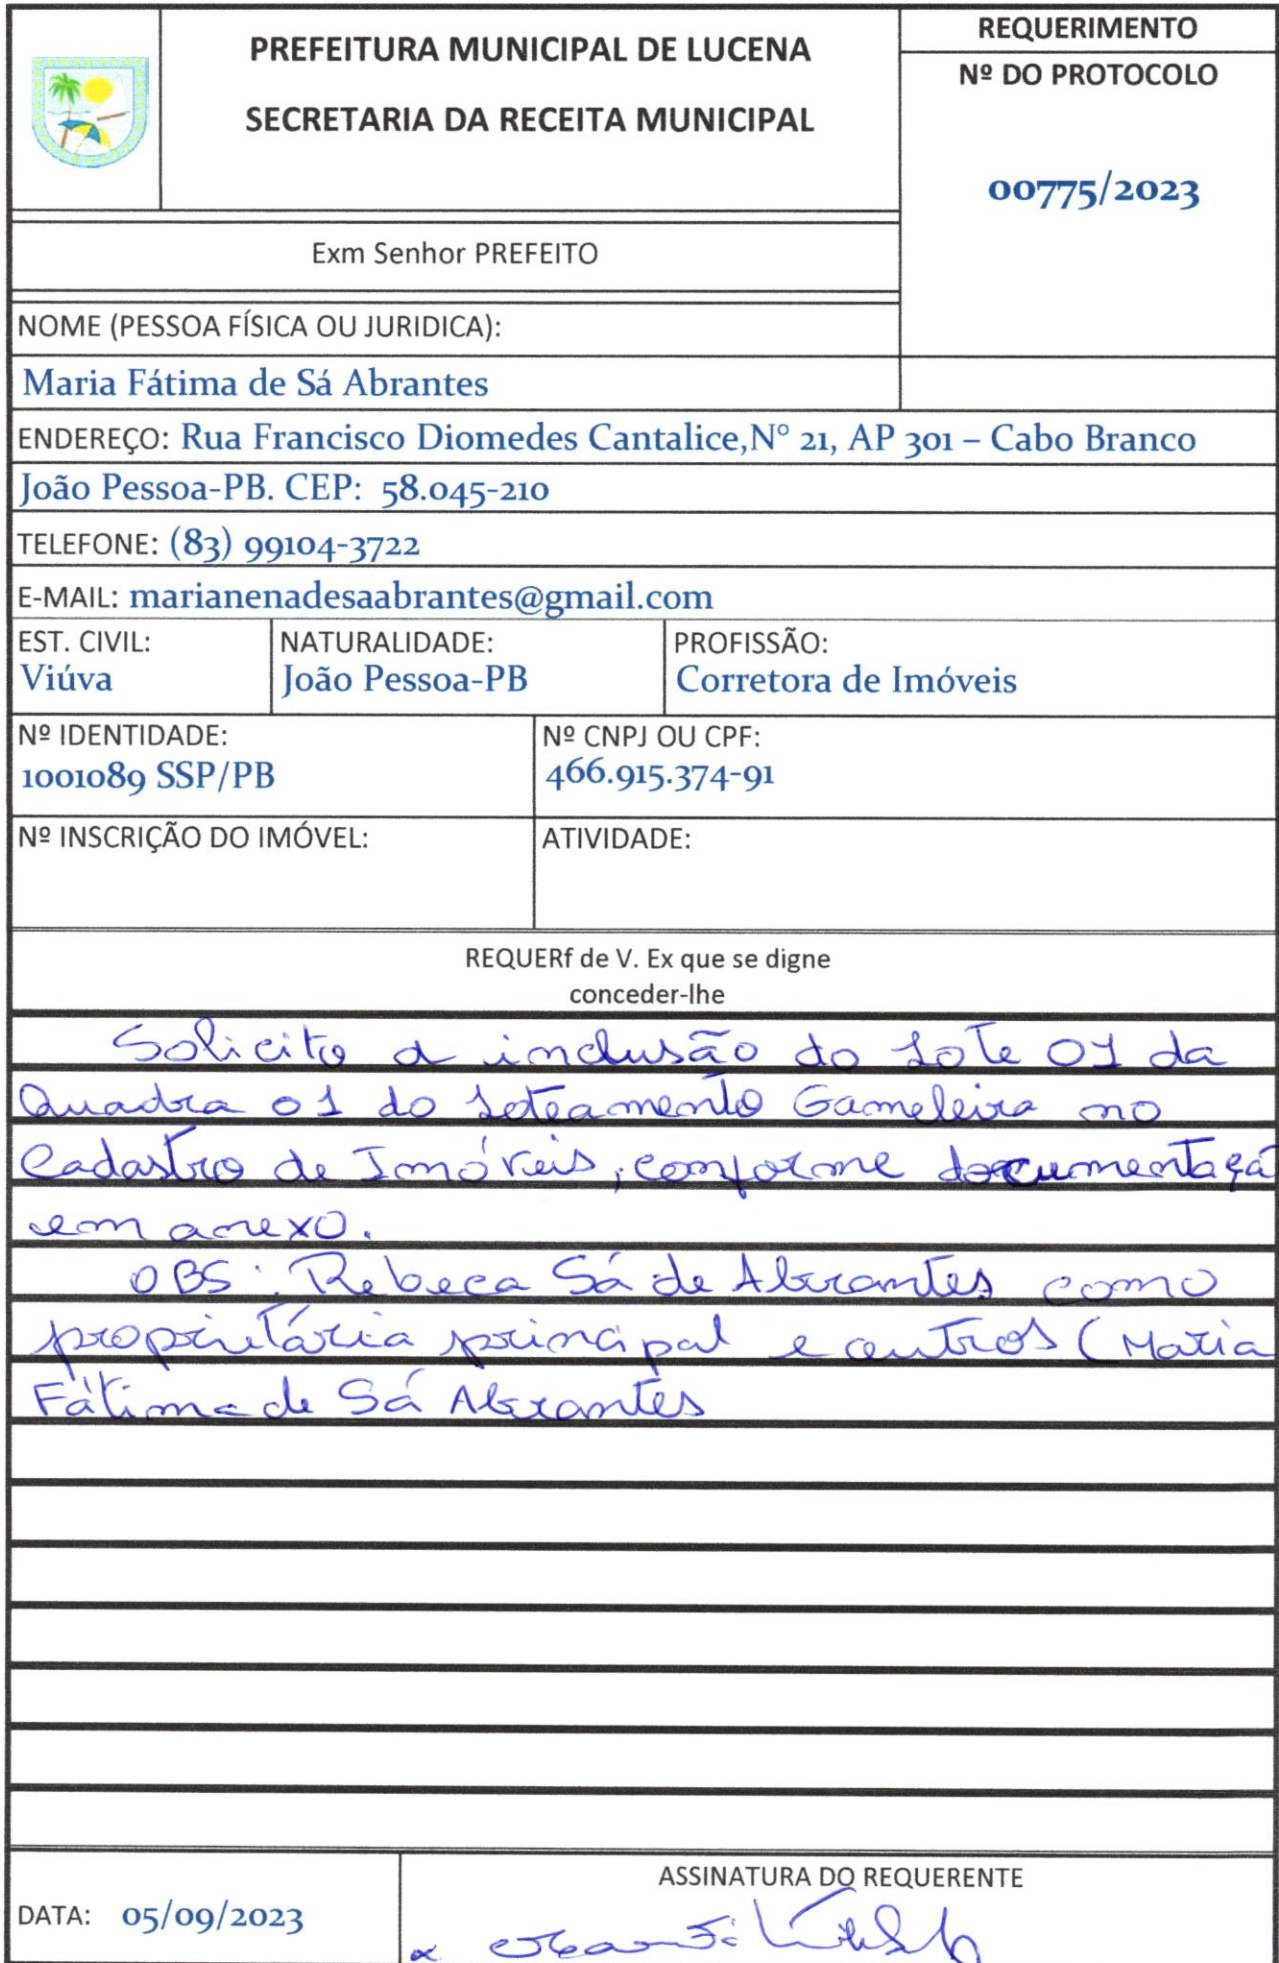 PREFEITURA MUNICIPAL DE LUCENA
SECRETARIA DA RECEITA MUNICIPAL
REQUERIMENTO
Nº DO PROTOCOLO
00775/2023
Exm Senhor PREFEITO
NOME (PESSOA FÍSICA OU JURIDICA):
Maria Fátima de Sá Abrantes
ENDEREÇO: Rua Francisco Diomedes Cantalice,N° 21, AP 301 – Cabo Branco
João Pessoa-PB. CEP: 58.045-210
TELEFONE: (83) 99104-3722
E-MAIL: marianenadesaabrantes@gmail.com
EST. CIVIL:
Viúva
NATURALIDADE:
João Pessoa-PB
PROFISSÃO:
Corretora de Imóveis
Nº IDENTIDADE:
1001089 SSP/PB
Nº CNPJ OU CPF:
466.915.374-91
Nº INSCRIÇÃO DO IMÓVEL:
ATIVIDADE:
REQUERf de V. Ex que se digne
conceder-lhe
Solicito a inclusão do Lote 01 da
Quadra 01 do Loteamento Gameleira no
Cadastro de Imóveis, conforme documentaçã
em anexo.
OBS: Rebeca Sá de Abrantes como
proprietária principal e outros (Maria
Fátima de Sá Abrantes
DATA: 05/09/2023
ASSINATURA DO REQUERENTE